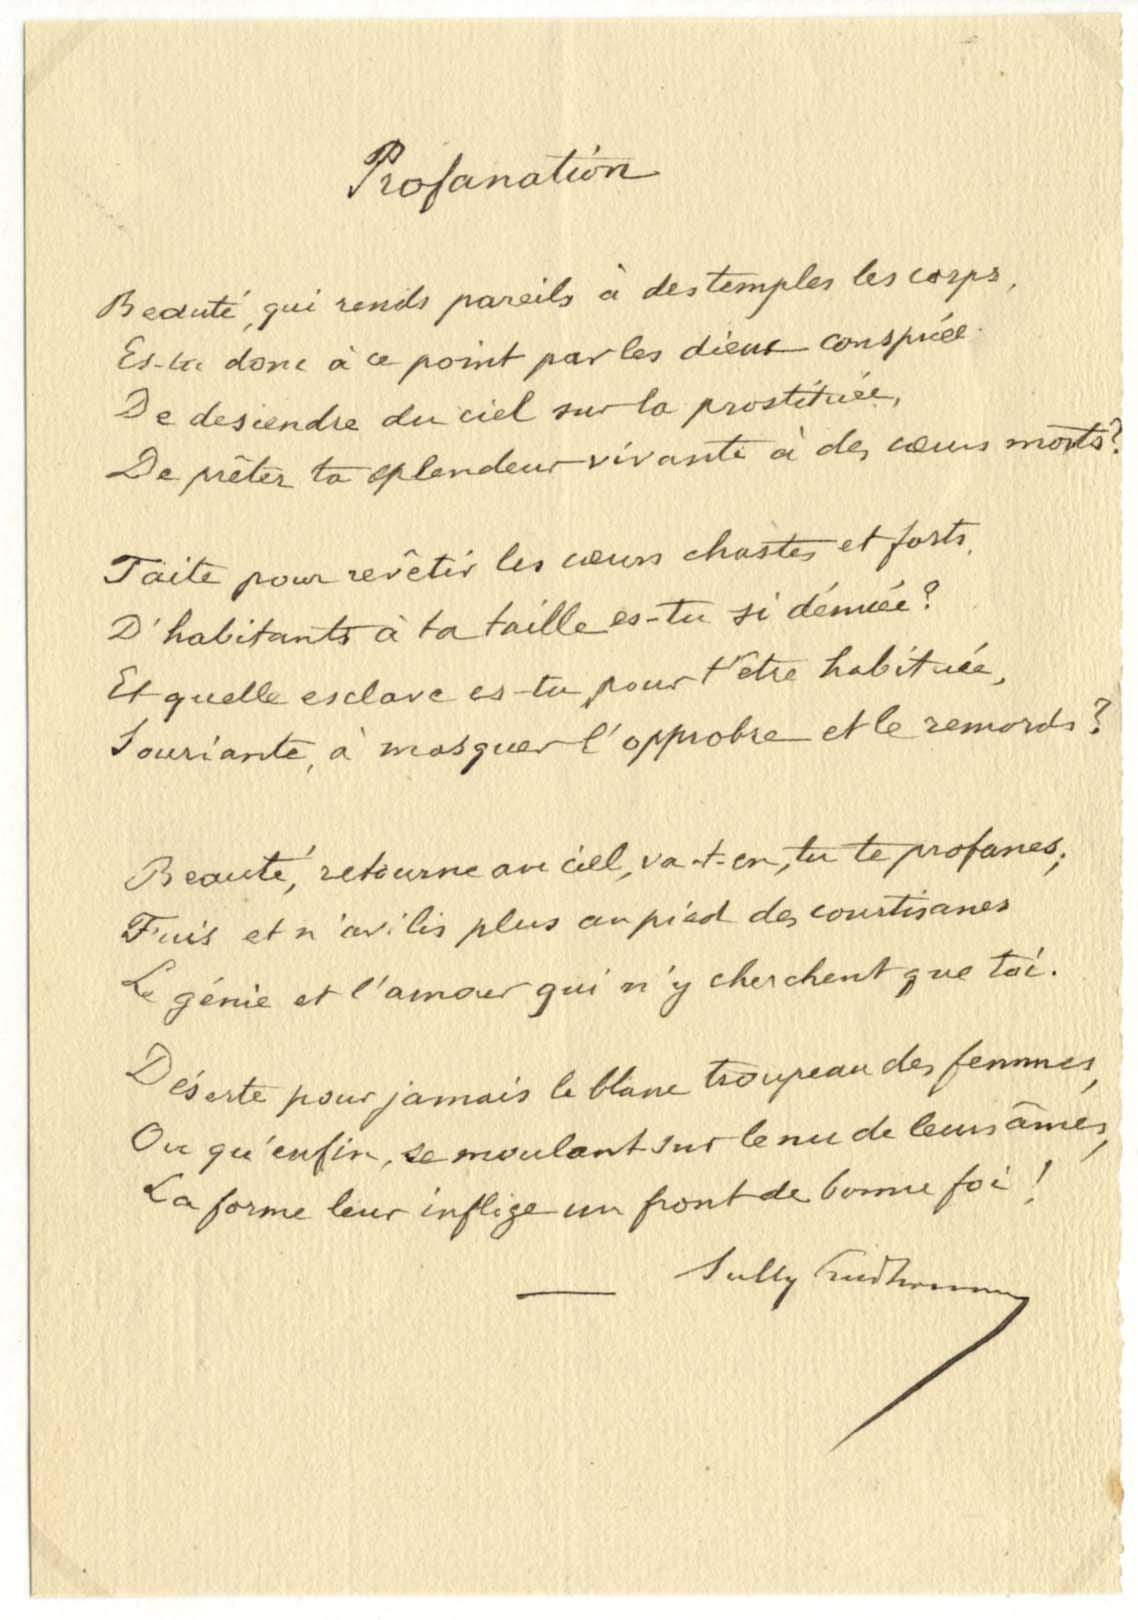 Profanation
Beauté, qui rends pareils à des temples les corps,
Es-tu donc à ce point par les dieux conspuée
De descendre du ciel sur la prostituée,
De prêter ta splendeur vivante à des cœurs morts?
Faite pour revêtir les cœurs chastes et forts,
D'habitants à ta taille es-tu si dénuée?
Et quelle esclave es-tu pour t'être habituée,
Souriante, à masquer l'opprobre et le remords?
Beauté, retourne au ciel, va-t-en, tu te profanes;
Fuis et n'avilis plus au pied des courtisanes
Le génie et l'amour qui n'y cherchent que toi.
Déserte pour jamais le blanc troupeau des femmes,
Ou qu'enfin, se moulant sur le nu de leurs âmes,
La forme leur inflige un front de bonne foi!
Sully Prudhomme